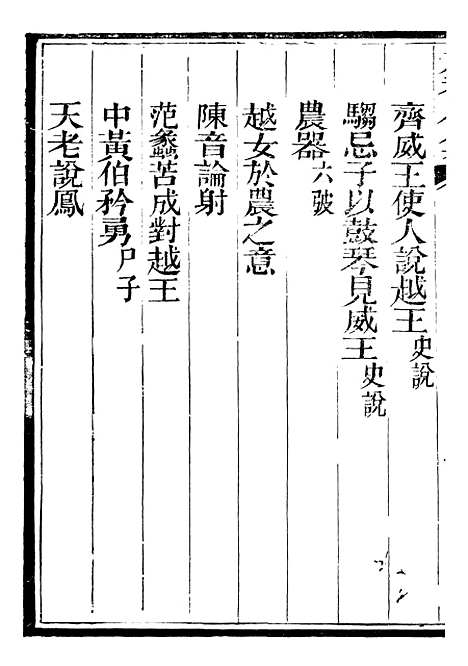 齊威王使人說越王史說
騶忌子以鼓琴見威王史說
農器六韍
越女於農之意
陳音論射
范蠡苦成對越王
中黃伯矜勇尸子
天老說鳳